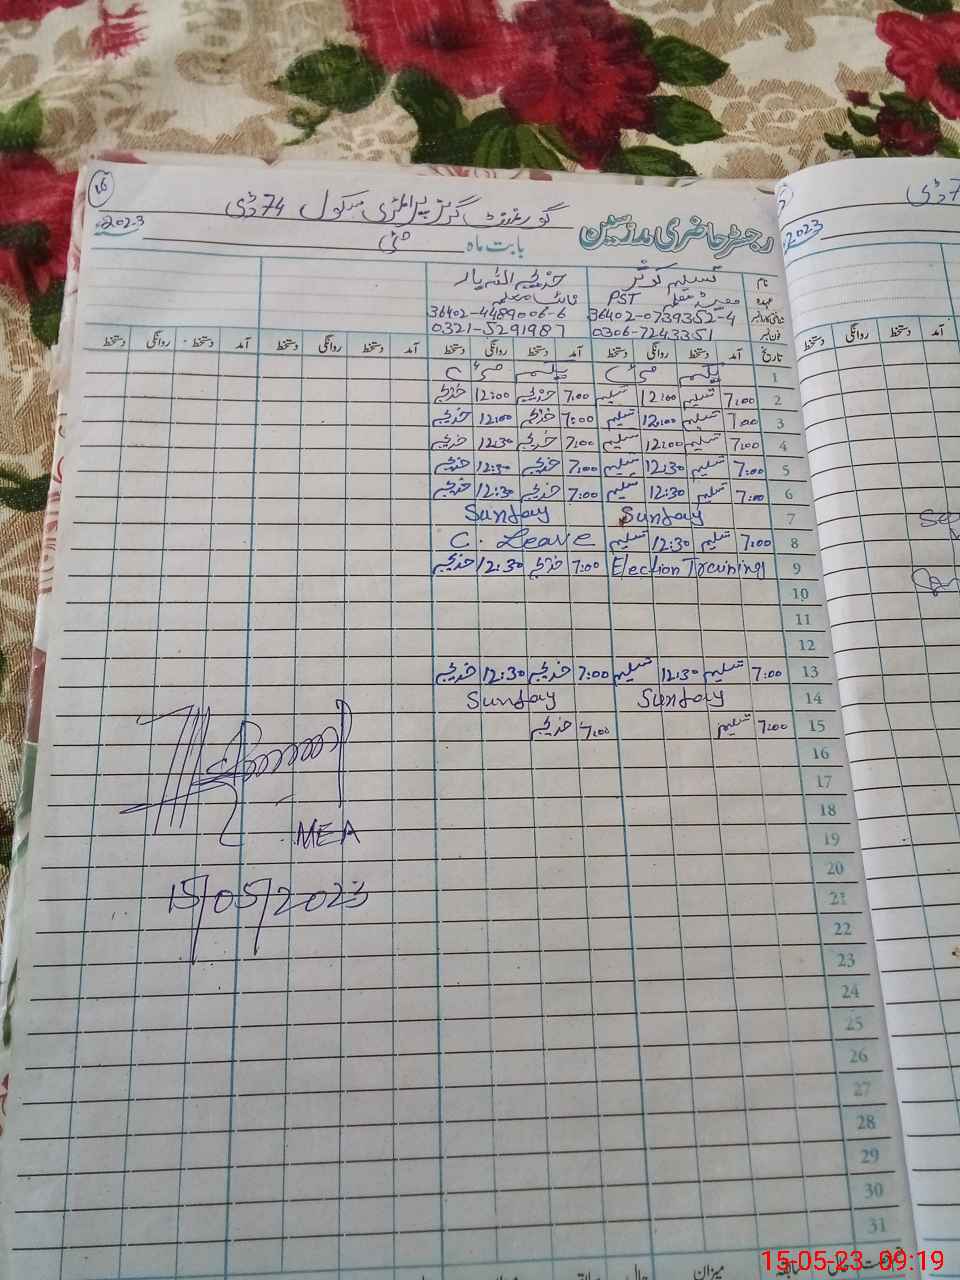 16
گورنمنٹ گرلز پرائمری سکول 74 ڈی
2023
رجسٹر حاضری مدرسین
بابت ماہ مئی
نام تسلیم کوثر خدیجہ اللہ یار
عہدہ PST
36402-0739352-4 36402-4489006-6
0306-7243351 0321-5291987
تاریخ آمد دستخط روانگی دستخط آمد دستخط روانگی دستخط آمد دستخط روانگی دستخط آمد دستخط روانگی دستخط
1
2 7:00 تسلیم 12:00 تسلیم 7:00 خدیجہ 12:00 خدیجہ
3 7:00 تسلیم 12:00 تسلیم 7:00 خدیجہ 12:00 خدیجہ
4 7:00 تسلیم 12:00 تسلیم 7:00 خدیجہ 12:30 خدیجہ
5 7:00 تسلیم 12:30 تسلیم 7:00 خدیجہ 12:30 خدیجہ
6 7:00 تسلیم 12:30 تسلیم 7:00 خدیجہ 12:30 خدیجہ
7 Sunday Sunday
8 7:00 تسلیم 12:30 تسلیم C. Leave
9 Election Training 7:00 خدیجہ 12:30 خدیجہ
10
11
12
13 7:00 تسلیم 12:30 تسلیم 7:00 خدیجہ 12:30 خدیجہ
14 Sunday Sunday
15 7:00 تسلیم 7:00 خدیجہ
16
17
18
19
20
21
22
23
24
25
26
27
28
29
30
31
MEA
15/05/2023
میزان
2023
آمد دستخط روانگی دستخط
15-05-23 09:19